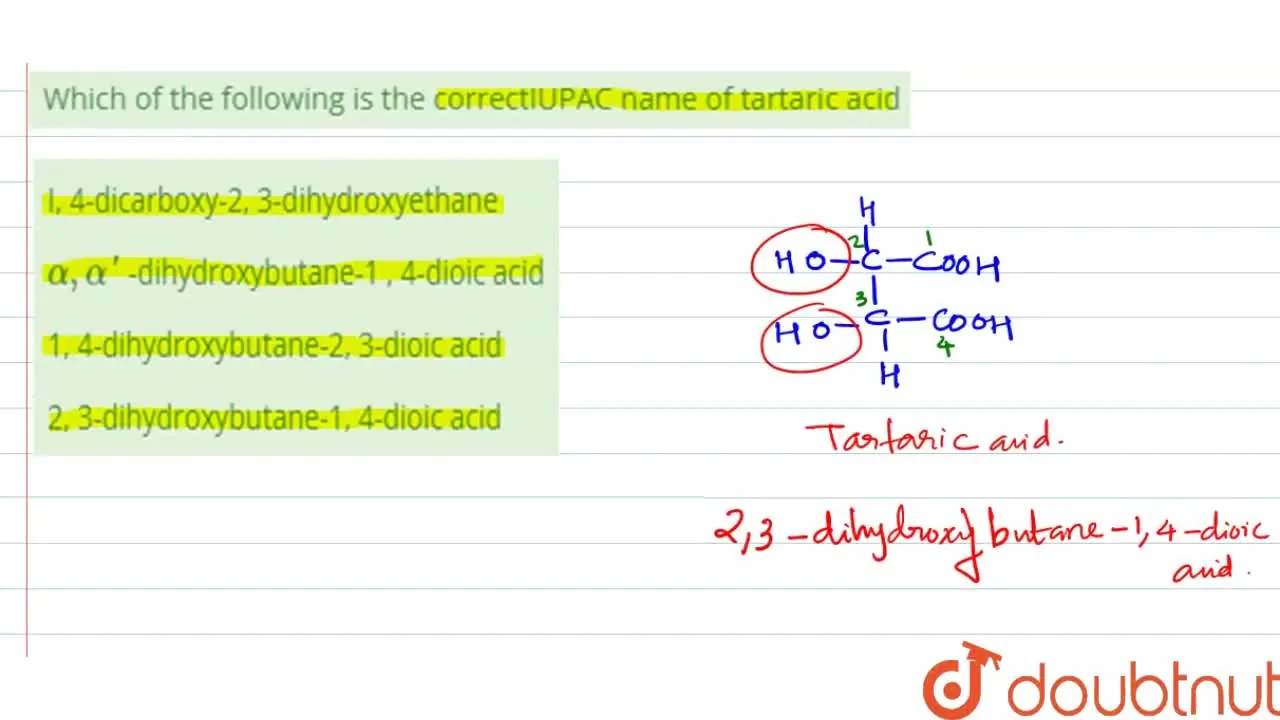 Which of the following is the correctIUPAC name of tartaric acid
I, 4-dicarboxy-2, 3-dihydroxyethane
α, α′ -dihydroxybutane-1 , 4-dioic acid
1, 4-dihydroxybutane-2, 3-dioic acid
2, 3-dihydroxybutane-1, 4-dioic acid
H
2 1
HO-C-COOH
3
HO-C-COOH
4
H
Tartaric acid.
2,3-dihydroxy butane-1,4-dioic
acid.
doubtnut